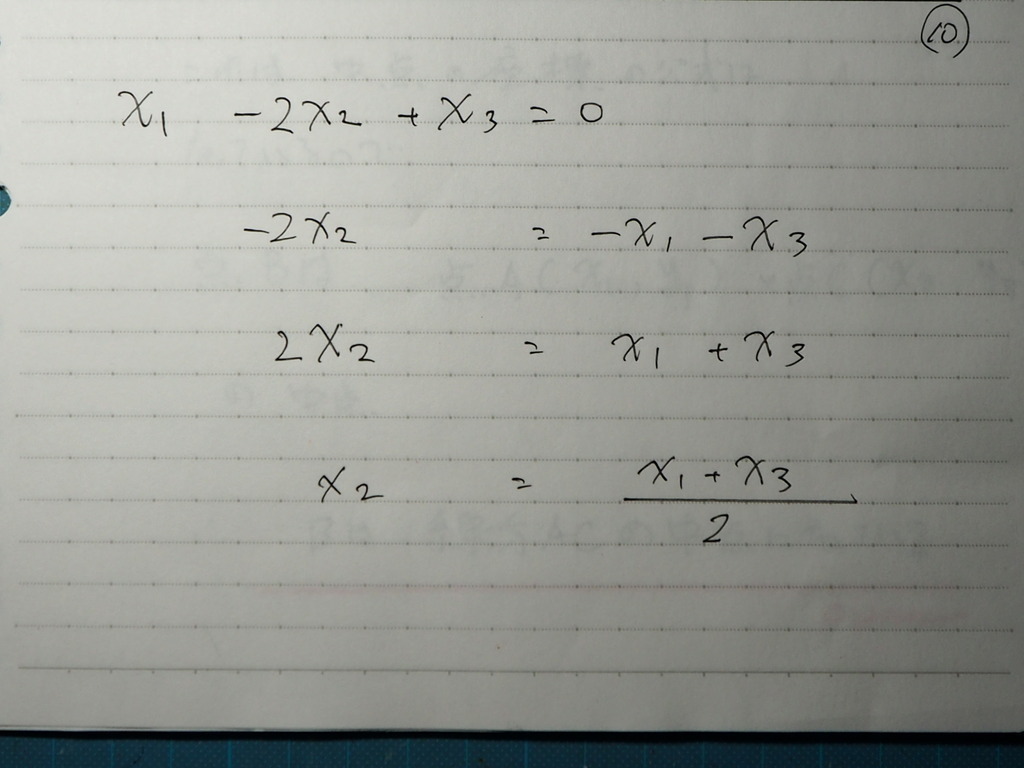 ⑩
x₁ - 2x₂ + x₃ = 0
-2x₂ = -x₁ - x₃
2x₂ = x₁ + x₃
x₂ = (x₁ + x₃)/2